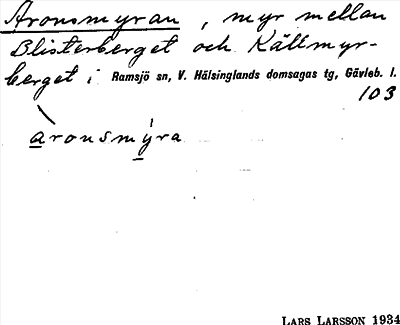 Aronsmyran, myr mellan
Blisterberget och Källmyr-
berget i Ramsjö sn, V. Hälsinglands domsagas tg, Gävleb. l.
103
aronsmyra
LARS LARSSON 1934